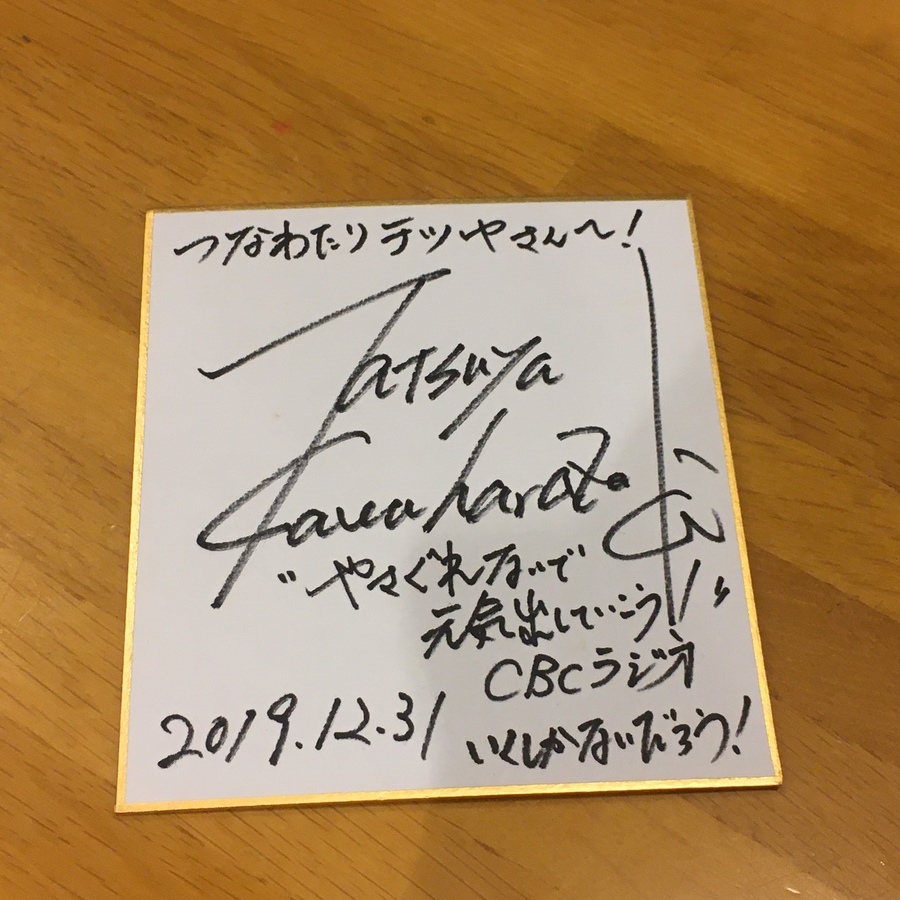 つなわたりテツヤさんへ!
Tatsuya
Kawahara
"やさぐれないで
元気出していこう!"
CBCラジオ
2019.12.31
いくしかないだろう!